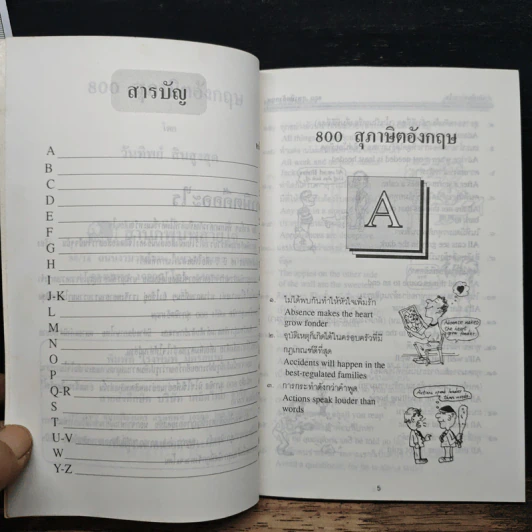 สารบัญ
A
B
C
D
E
F
G
H
I
J-K
L
M
N
O
P
Q-R
S
T
U-V
W
Y-Z
800 สุภาษิตอังกฤษ
A
๑. ไม่ได้พบกันทำให้หัวใจเพิ่มรัก
Absence makes the heart
grow fonder
๒. อุบัติเหตุก็เกิดได้ในครอบครัวที่มี
กฎเกณฑ์ดีที่สุด
Accidents will happen in the
best-regulated families
๓. การกระทำดังกว่าคำพูด
Actions speak louder than
words
Absence makes
the heart
grow fonder
Actions speak louder
than words
5